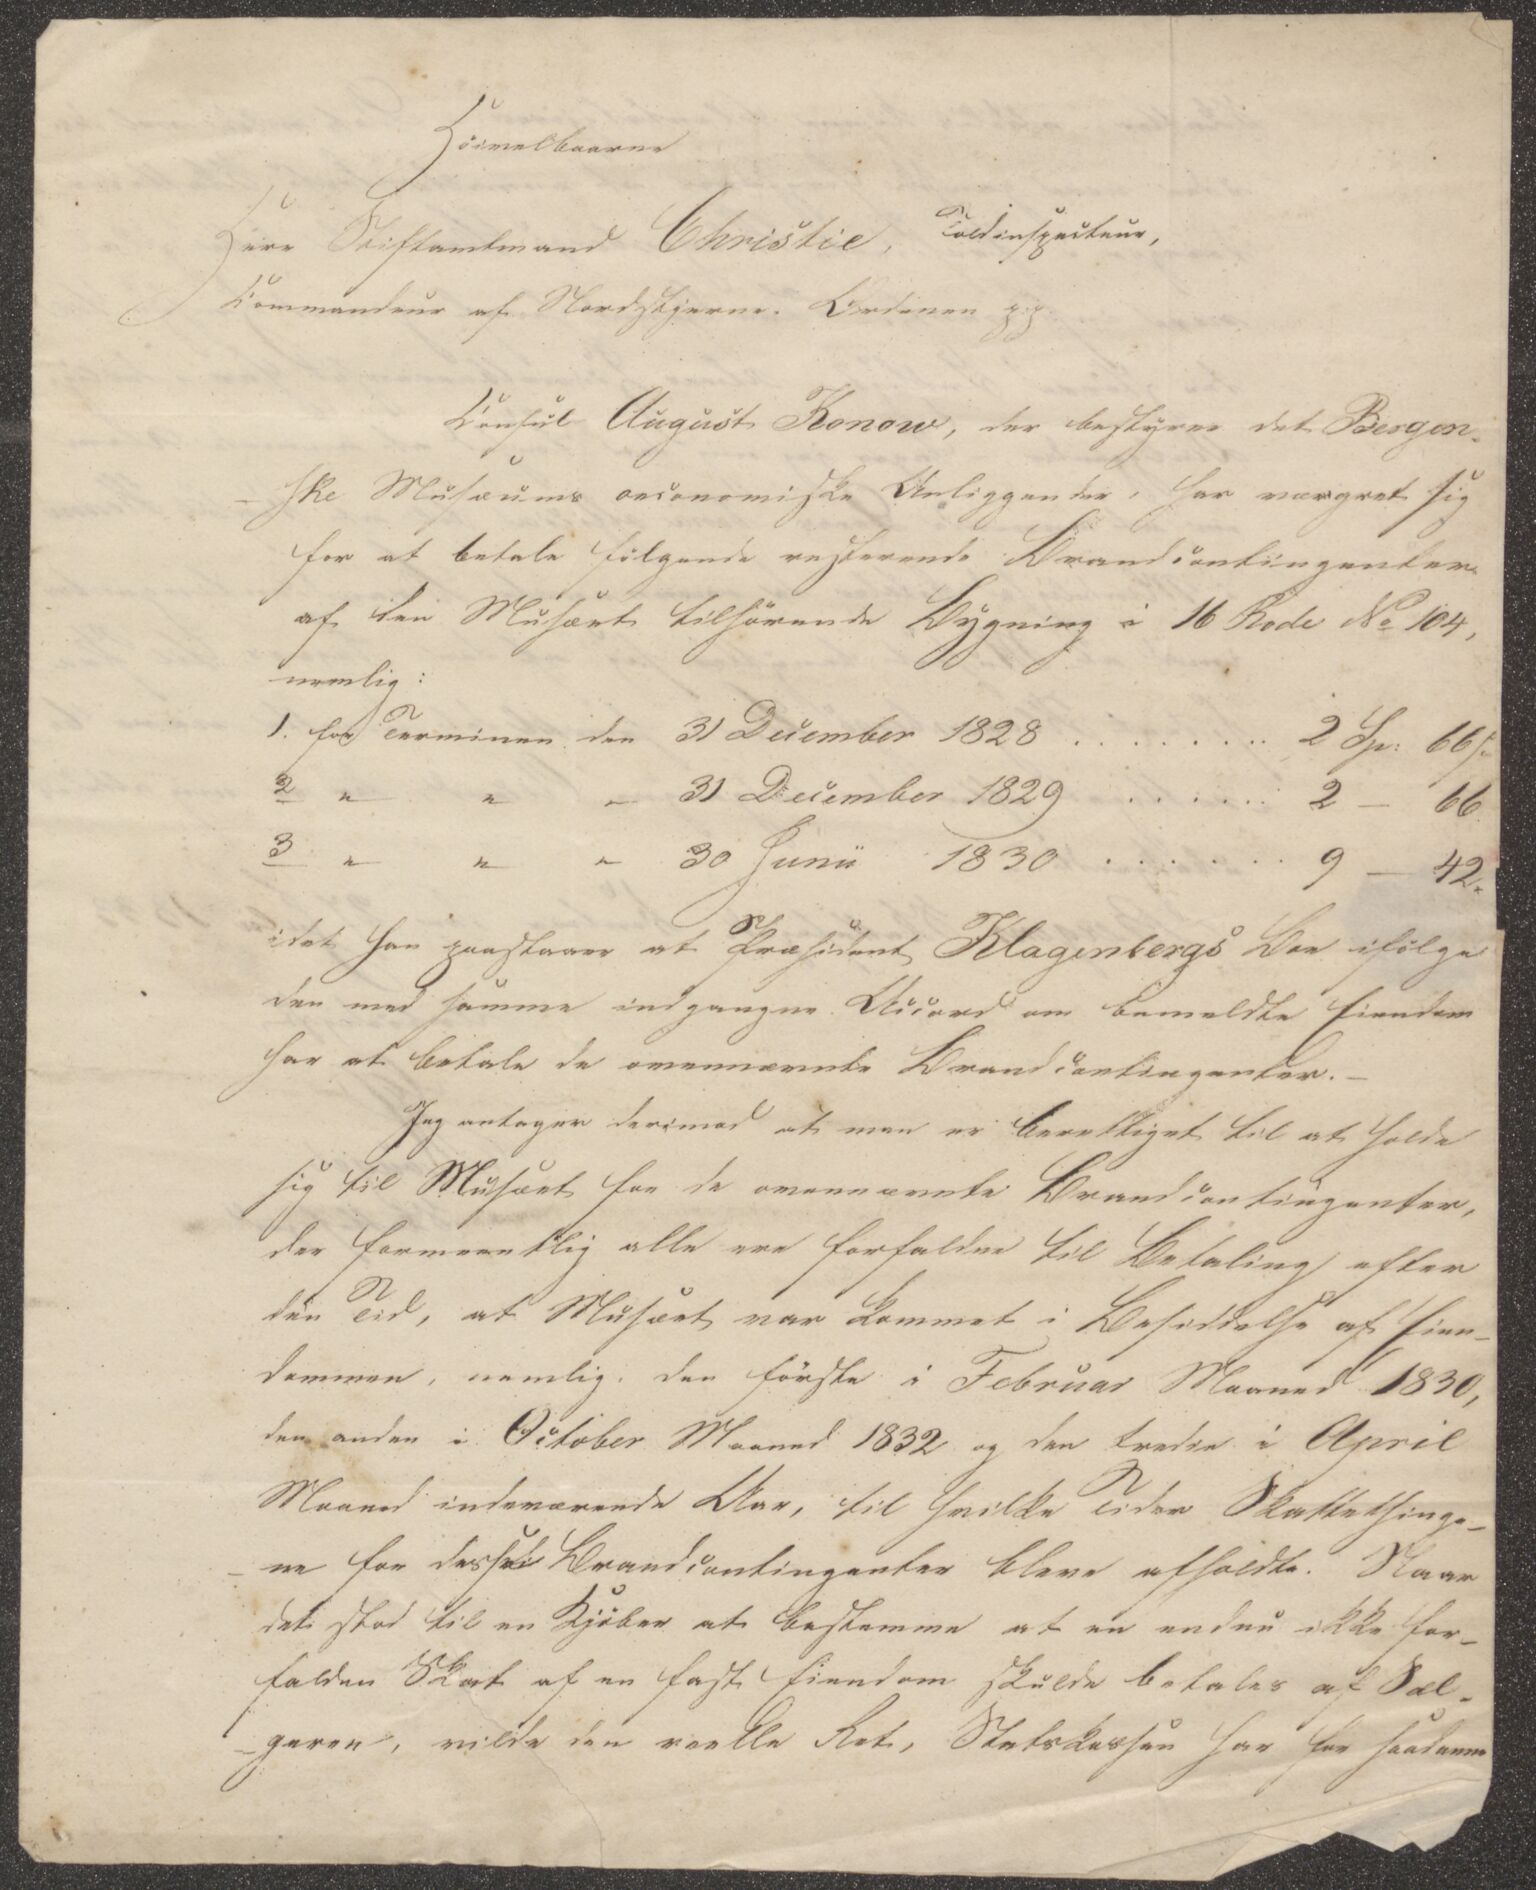 Höivelbaarne
Herr Stiftamtmand Christie, Toldinspecteur,
Commandeur af Nordstjerne-Ordenen p:p:
Consul August Konow, der bestyrer det Bergen-
-ske Musæums oeconomiske Anliggender, har vægret sig
for at betale følgende resterende Brandcontingenter
af den Musæet tilhörende Bygning i 16 Rode No 104,
nemlig:
1. for Terminen den 31 December 1828 . . . . . . . . 2 Sp: 66 s.
2 " " " 31 December 1829 . . . . . . 2 — 66
3 " " " 30 Junii 1830 . . . . . . . 9 — 42.
idet han paastaaer at Præsident Klagenbergs Boe ifølge
den med samme indgangne Accord om bemeldte Eiendom
har at betale de ovennævnte Brandcontingenter. —
Jeg antager derimod at man er berettiget til at holde
sig til Musæet for de ovennævnte Brandcontingenter,
der formeentlig alle ere forfaldne til Betaling efter
den Tid, at Musæet var kommet i Besiddelse af Eien-
dommen, nemlig: den förste i Februar Maaned 1830,
den anden i October Maaned 1832 og den tredie i April
Maaned indeværende Aar, til hvilke Tider Skattethinge-
-ne for disse Brandcontingenter bleve afholdte. Naar
det stod til en Kjöber at bestemme at en endnu ikke for-
falden Skat af en fast Eiendom skulde betales af Sæl-
-geren, vilde den reelle Ret, Statskassen har for saadanne